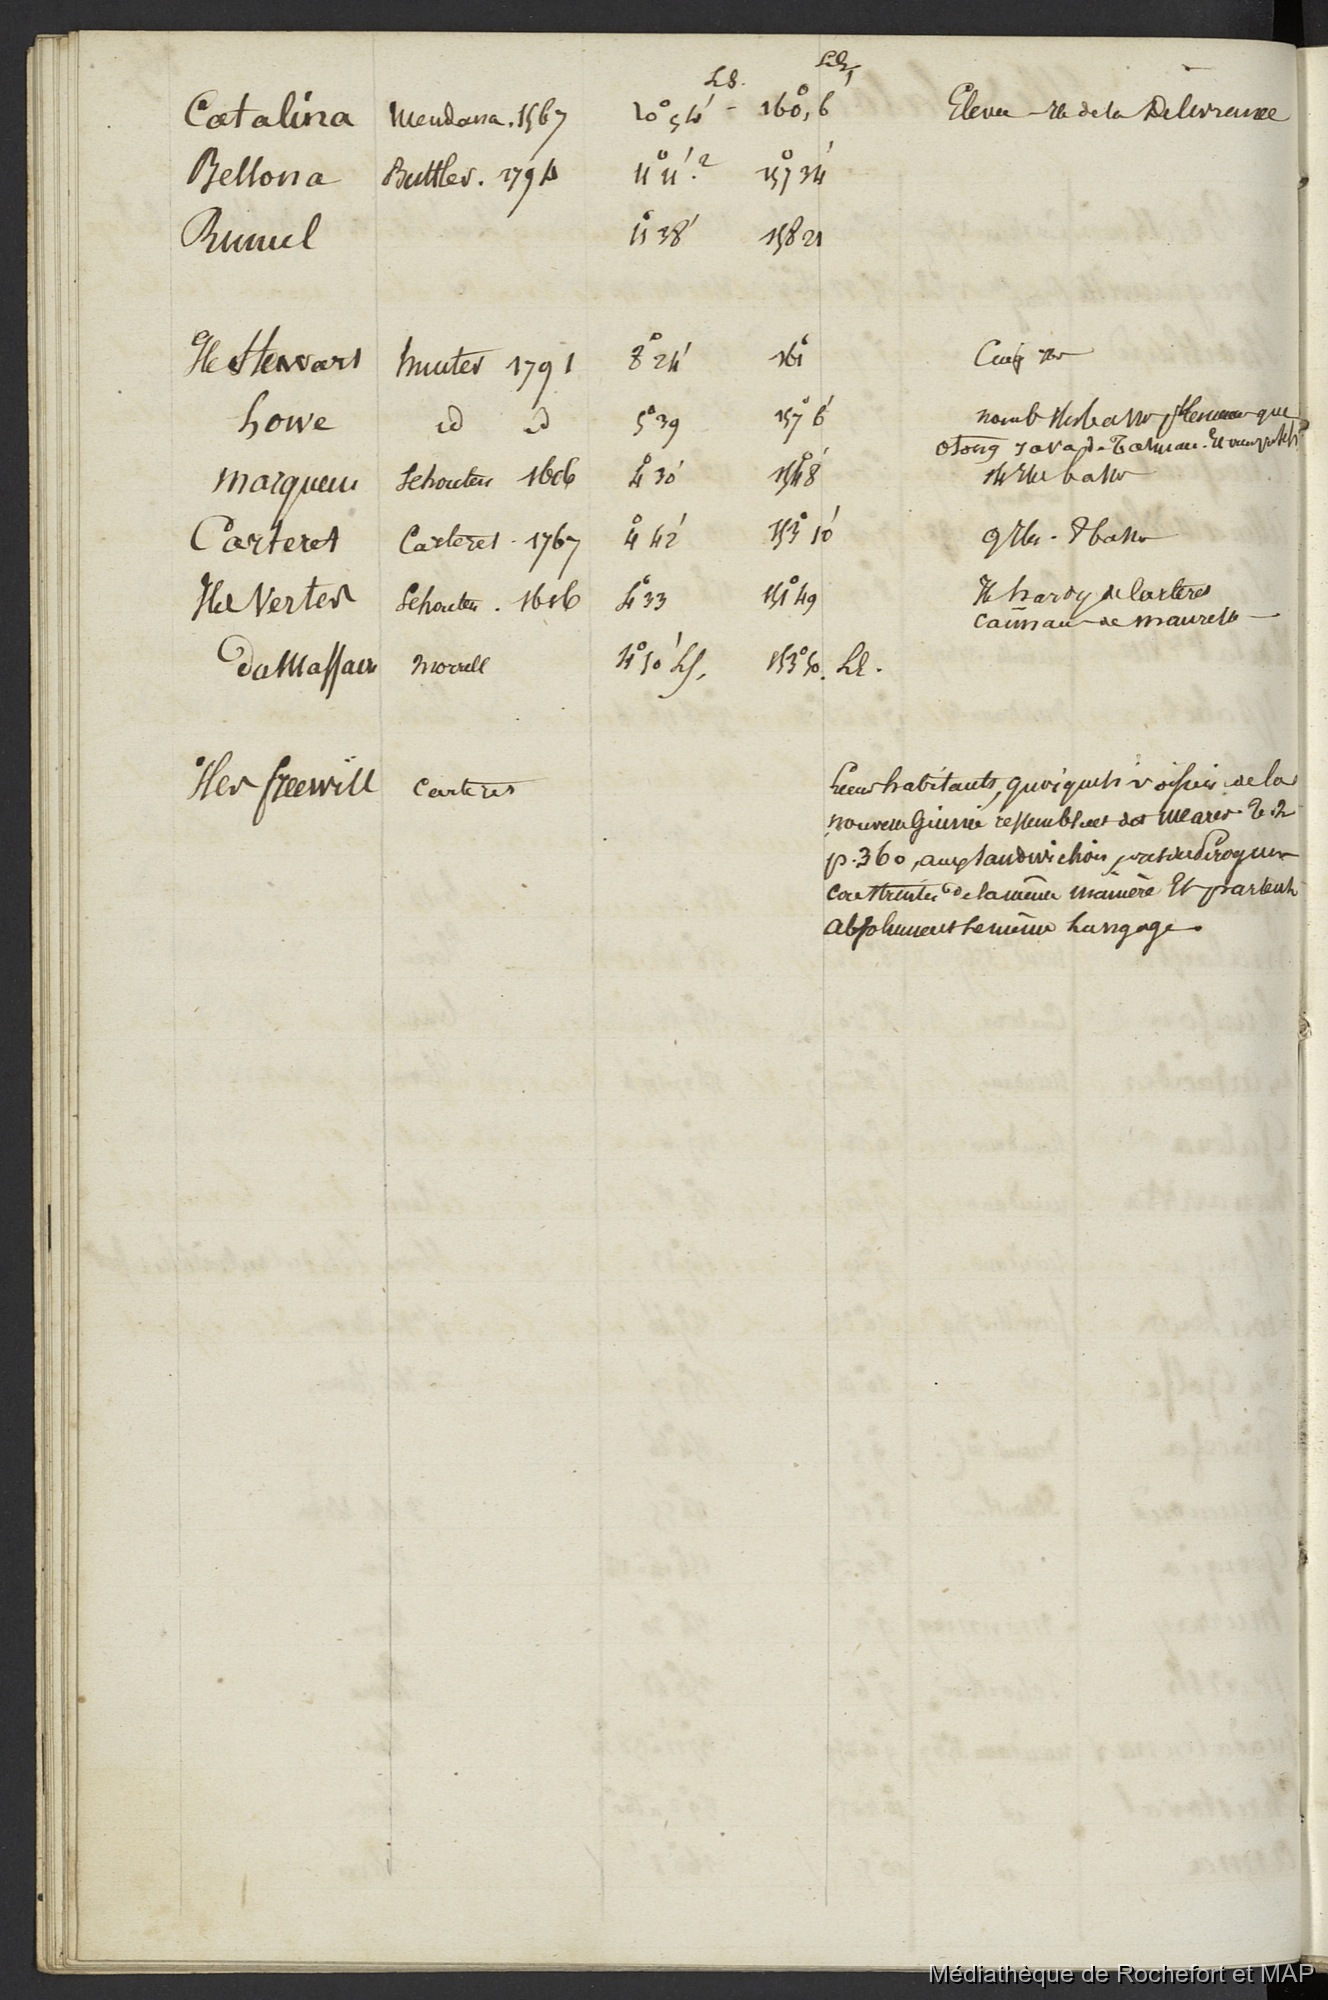 LS. LE
Catalina Mendana. 1567 10° 54' - 160°, 6' Elevee île de la Delivrance
Bellona Buttler. 1794 11° 11'.2 157° 34'
Rennel 11° 38' 158 21
Ile Stewart hunter 1791 8° 24' 161° Cinq iles
howe id id 5° 39 157° 6' nomb Iles basses que
otong Java de Tasman.
marqueen Schouten 1616 4° 30' 154° 8' 14 Iles basses
Carteret Carteret - 1767 4° 42' 153° 10' 9 Iles - basses
Ile Verter Schouten. 1616 4° 33 151° 49 Ile hardy de Carteret
Caïman de maurelle
du Massacre Morrell 4° 50' LS. 153° 50. LE.
Iles freewill Carteret Leurs habitants, quoique voisins de la
nouvelle Guinée ressemblent dit Meares T. 2
p. 360, aux Sandwichois, ont des Pirogues
construites de la même manière Et parlent
absolument le même Langage.
Médiathèque de Rochefort et MAP